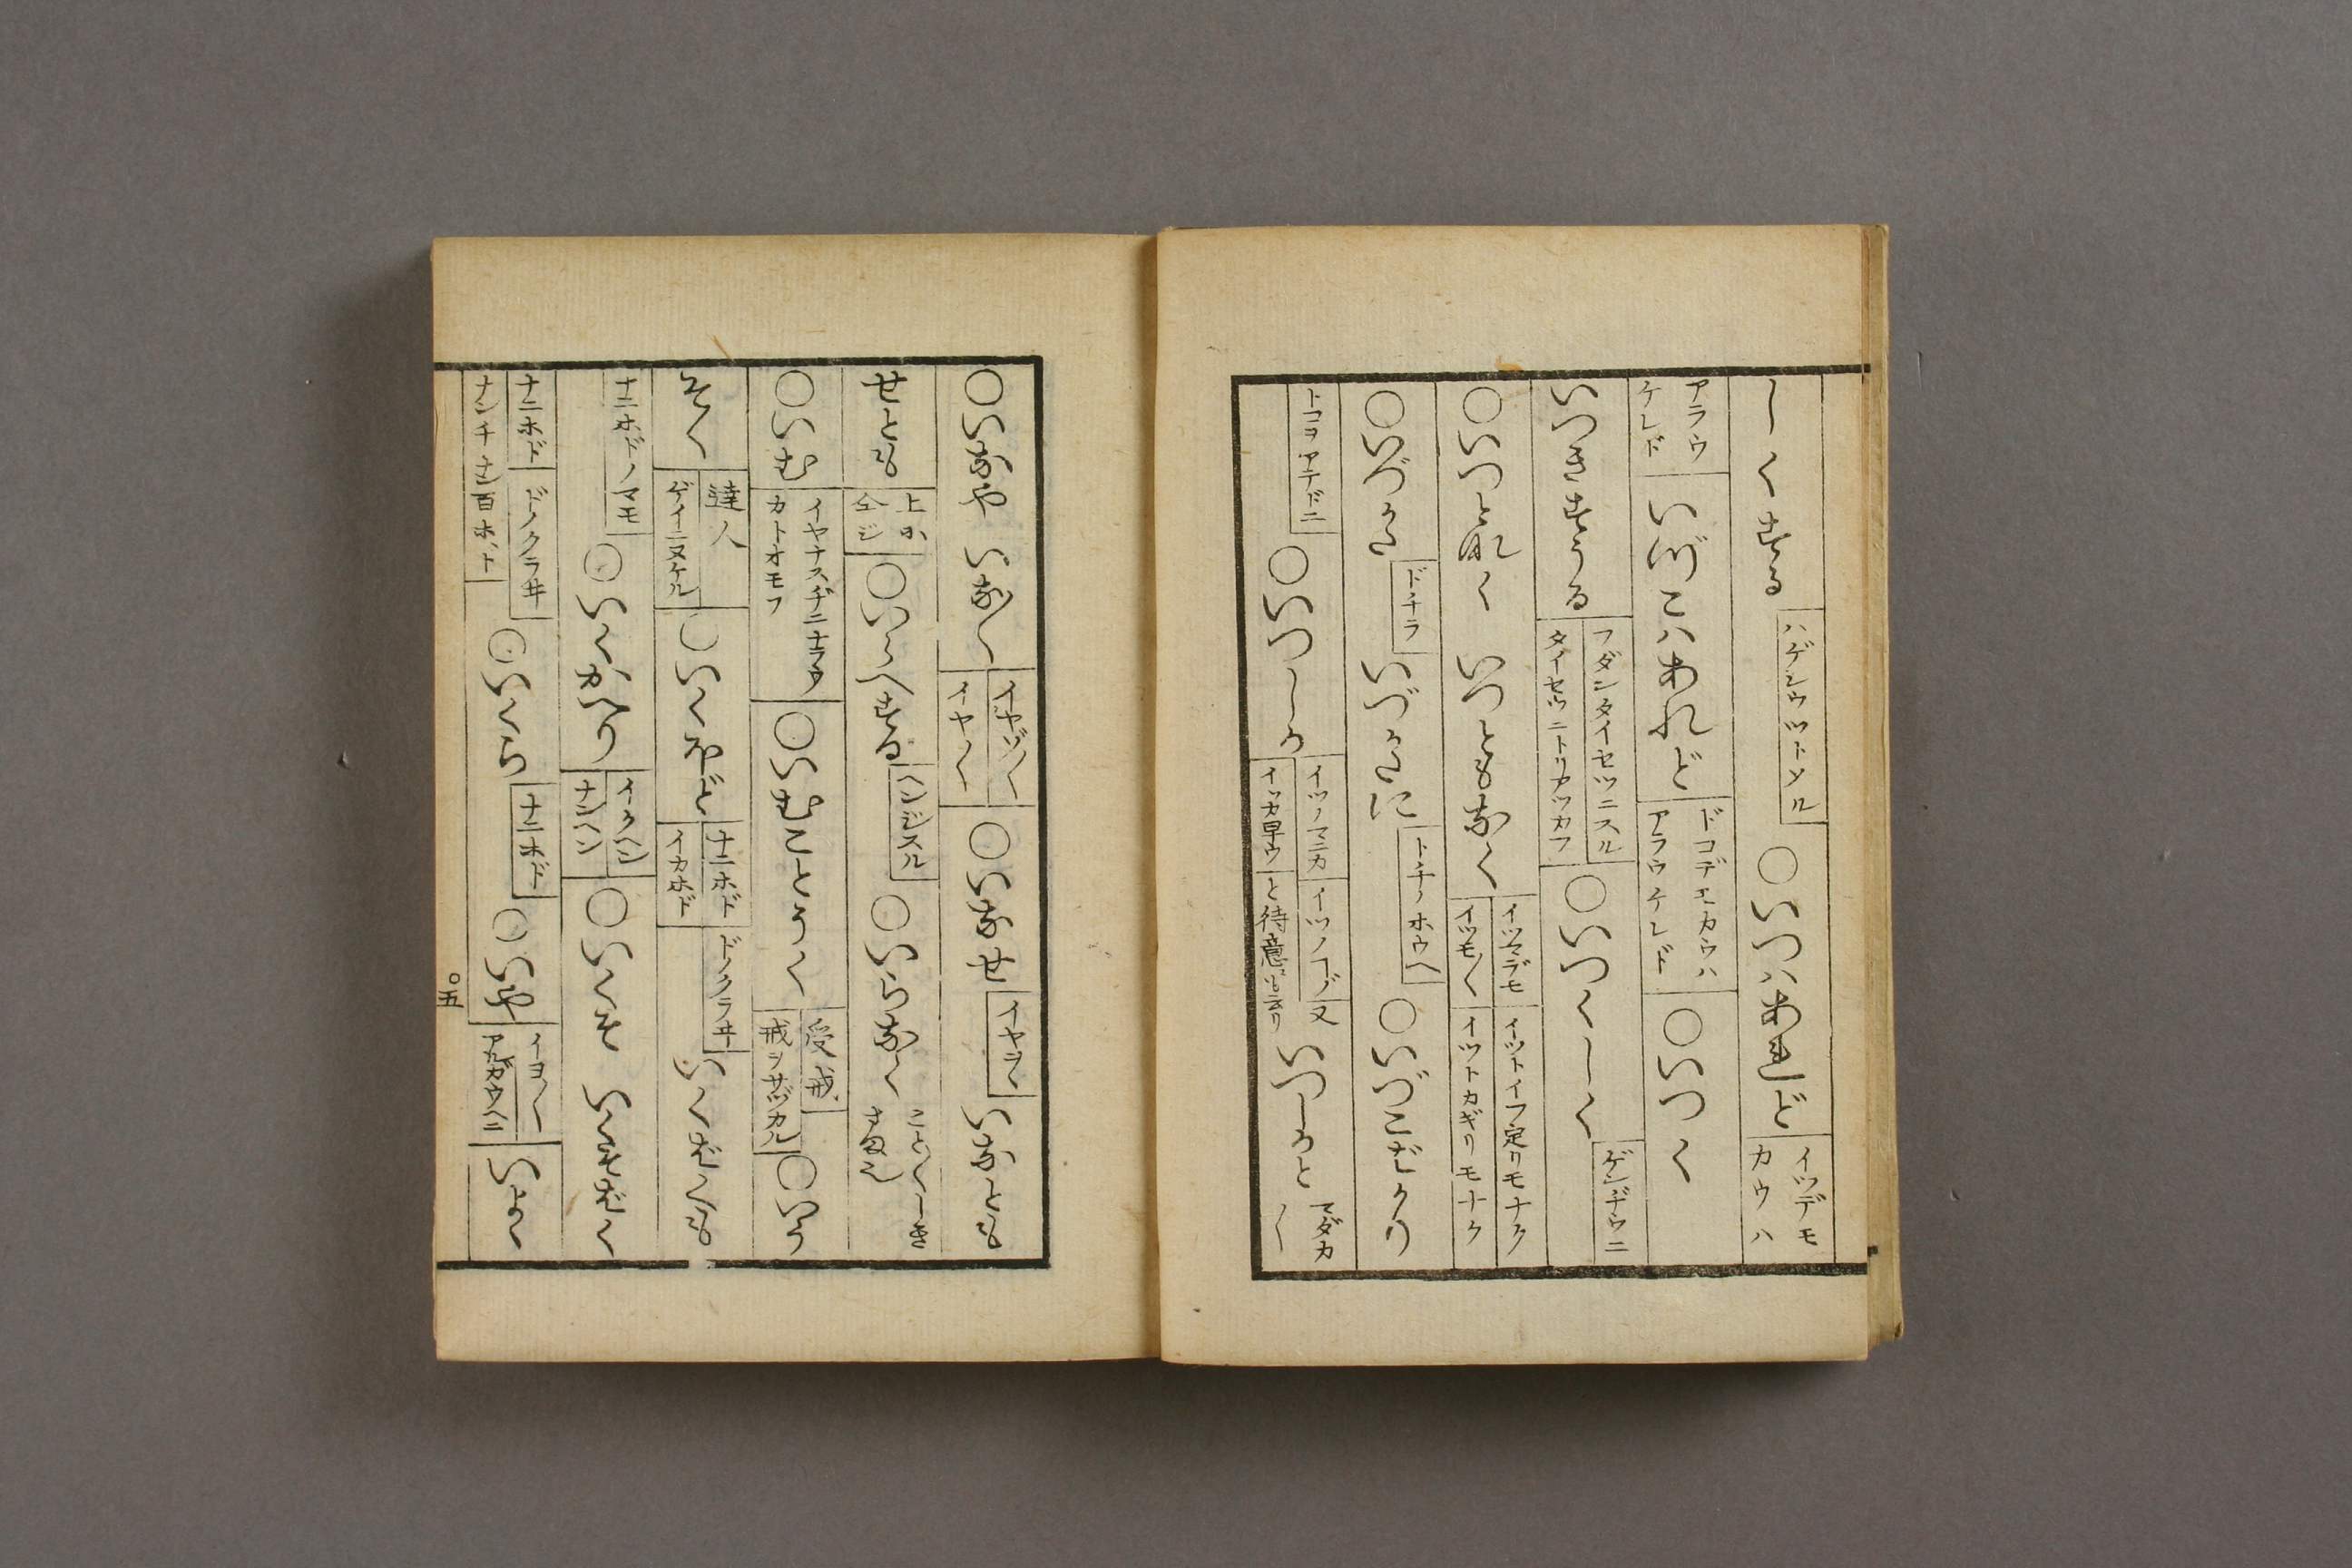 しくする ハゲシウツトメル ○いつハあれど イツデモ カウハ
アラウ ケレド いづこハあれど ドコデモカウハ アラウケレド ○いつく
いつきすうる フダンタイセツニスル タイセツニトリアツカフ ○いつくしく ゲンヂウニ
○いつと無く いつともなく イツマデモ イツモ〱 イツトイフ定リモナク イツトカギリモナク
○いづかた ドチラ いづかたに トチノホウヘ ○いづこばかり
トコヲアテドニ ○いつしか イツノマニカ イツカ早ウ イツノコヾ又 と待意にも云り いつしかと マダカ〱
○いなや いな〱 イヤヅ〱 イヤ〱 ○いなせ イヤヲヽ いなとも
せとも 上ニ 仝ジ ○いらへする ヘンジスル ○いらなく こと〱しき さま也
○いむ イヤナスヂニナラヌ カトオモフ ○いむことうく 受戒 戒ヲサヅカル ○いう
そく 達人 ゲイニヌケル ○いくほど ナニホド イカホド ドノクラヰ いくばくも
ナニホドノマモ ○いくかへり イクヘン ナンヘン ○いくそ いくそばく
ナニホド ドノクラヰ ナンチナン百ホト ○いくら ナニホド ○いや イヨ〱 アルガウヘニ いよ〱
○五